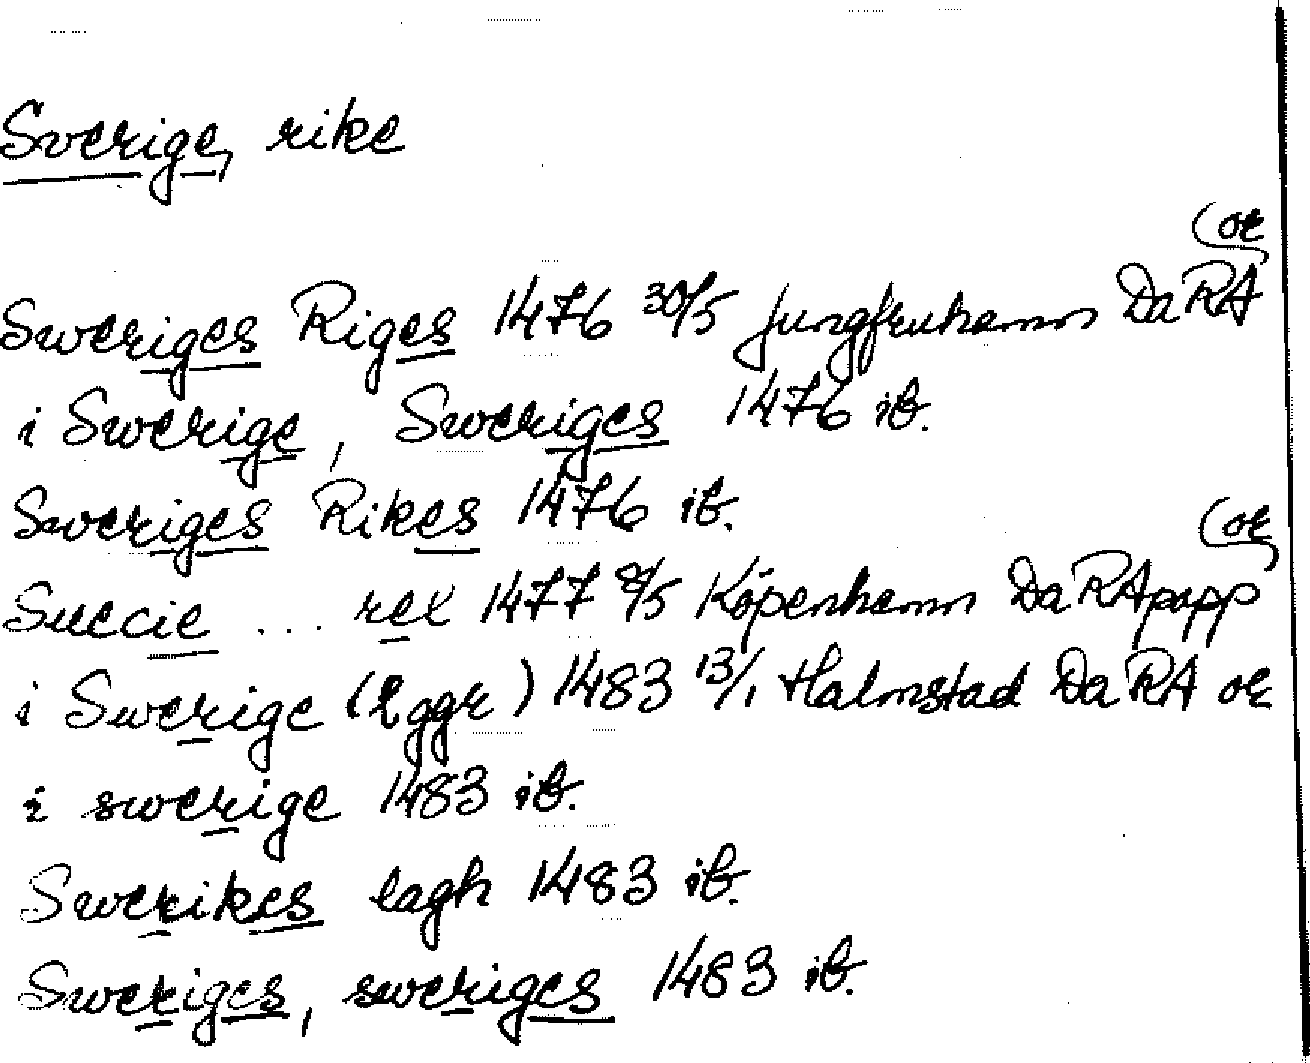 Sverige, rike
(or
Sweriges Riges 1476 30/5 Jungfruhamn DaRA
i Swerige, Sweriges 1476 ib.
Sweriges Rikes 1476 ib.
(or
Suecie ... rex 1477 8/5 Köpenhamn DaRApapp
i Swerige (2 ggr) 1483 13/1 Halmstad DaRA or
i swerige 1483 ib.
Swerikes lagh 1483 ib.
Sweriges, sweriges 1483 ib.